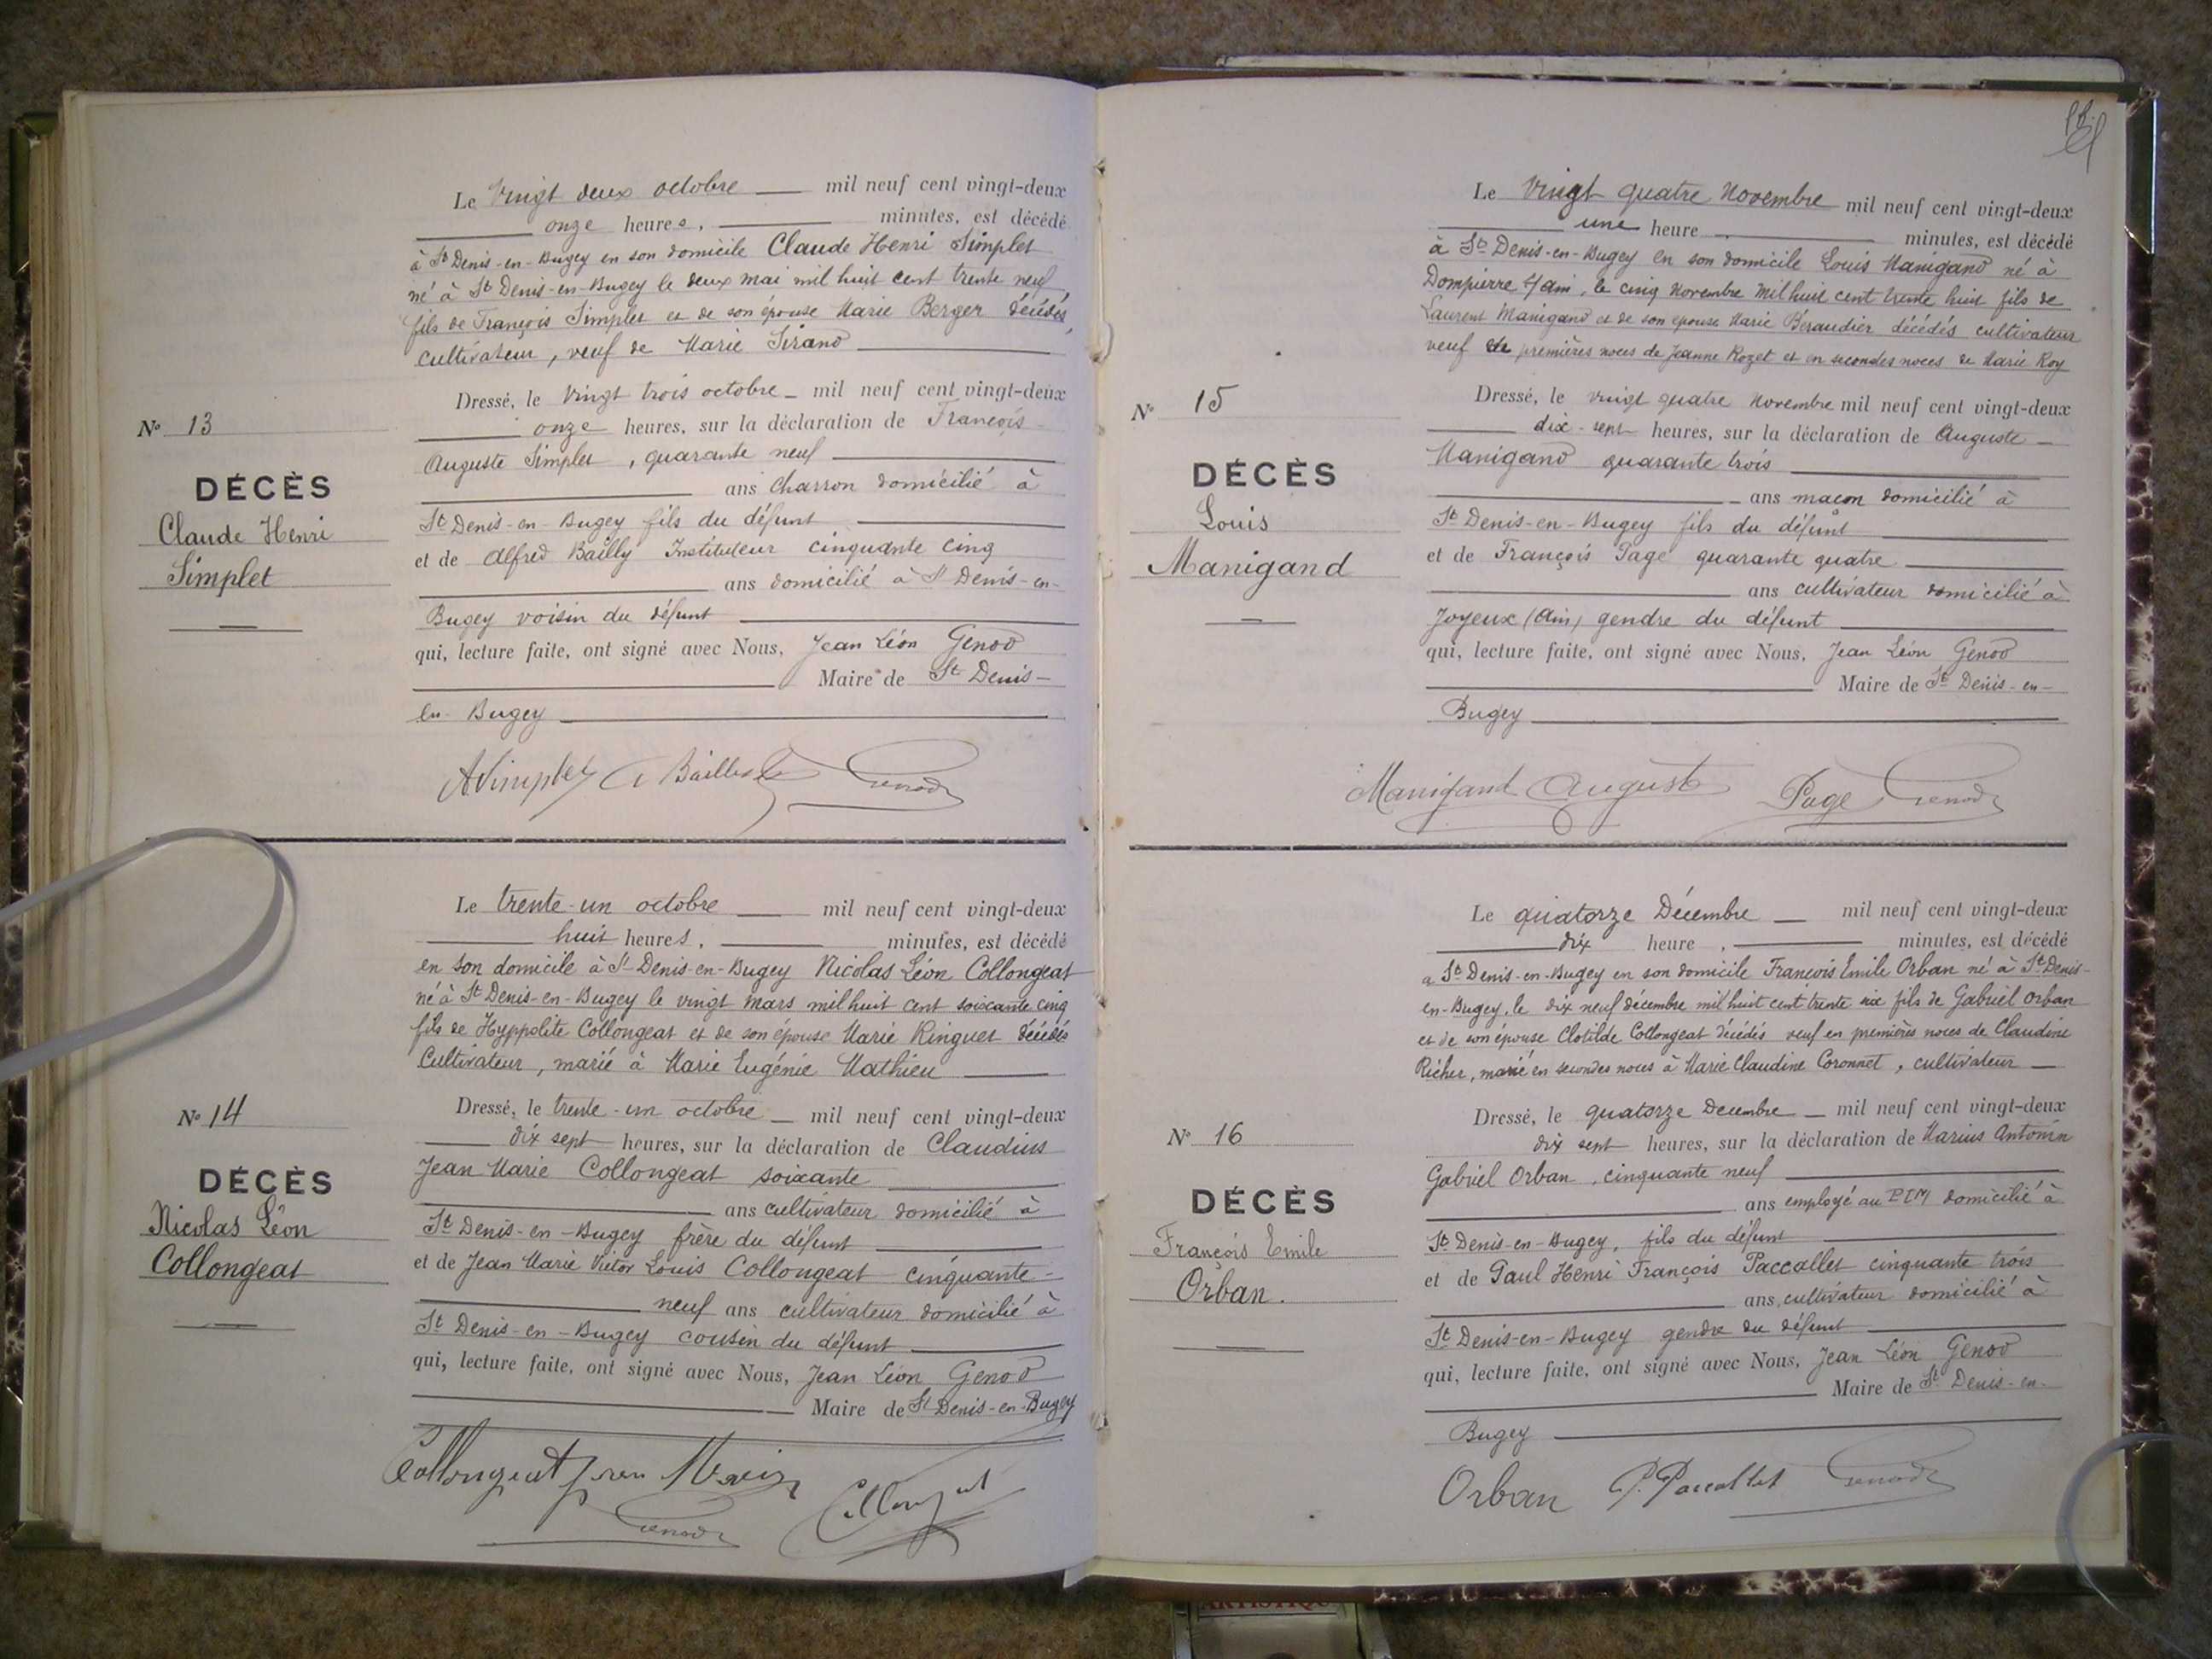 Le Vingt deux octobre mil neuf cent vingt-deux
onze heures, minutes, est décédé
à St Denis-en-Bugey en son domicile Claude Henri Simplet
né à St Denis-en-Bugey le deux mai mil huit cent trente neuf
fils de François Simplet et de son épouse Marie Berger décédés,
cultivateur, veuf de Marie Sirand
Dressé, le Vingt trois octobre mil neuf cent vingt-deux
onze heures, sur la déclaration de François
Auguste Simplet, quarante neuf
ans Charron domicilié à
St Denis-en-Bugey fils du défunt
et de Alfred Bailly Instituteur cinquante cinq
ans domicilié à St Denis-en-
Bugey voisin du défunt
qui, lecture faite, ont signé avec Nous, Jean Léon Genod
Maire de St Denis-
en-Bugey
N° 13
DÉCÈS
Claude Henri
Simplet
ASimplet Bailly Genod
Le trente-un octobre mil neuf cent vingt-deux
huit heures, minutes, est décédé
en son domicile à St Denis-en-Bugey Nicolas Léon Collongeat
né à St Denis-en-Bugey le vingt mars mil huit cent soixante cinq
fils de Hyppolite Collongeat et de son épouse Marie Ringuet décédés
Cultivateur, marié à Marie Eugénie Mathieu
Dressé, le trente-un octobre mil neuf cent vingt-deux
dix sept heures, sur la déclaration de Claudius
Jean Marie Collongeat soixante
ans cultivateur domicilié à
St Denis-en-Bugey frère du défunt
et de Jean Marie Victor Louis Collongeat cinquante-
neuf ans cultivateur domicilié à
St Denis-en-Bugey cousin du défunt
qui, lecture faite, ont signé avec Nous, Jean Léon Genod
Maire de St Denis-en-Bugey
N° 14
DÉCÈS
Nicolas Léon
Collongeat
Collongeat Jean Marie Collongeat
Genod
Le Vingt quatre Novembre mil neuf cent vingt-deux
une heure minutes, est décédé
à St Denis-en-Bugey en son domicile Louis Manigand né à
Dompierre s/ain, le cinq Novembre Mil huit cent trente huit fils de
Laurent Manigand et de son épouse Marie Béraudier décédés cultivateur
veuf de premières noces de Jeanne Rozet et en secondes noces de Marie Roy
Dressé, le vingt quatre Novembre mil neuf cent vingt-deux
dix-sept heures, sur la déclaration de Auguste
Manigand quarante trois
ans maçon domicilié à
St Denis-en-Bugey fils du défunt
et de François Page quarante quatre
ans cultivateur domicilié à
Joyeux (Ain) gendre du défunt
qui, lecture faite, ont signé avec Nous, Jean Léon Genod
Maire de St Denis-en-
Bugey
N° 15
DÉCÈS
Louis
Manigand
Manigand Auguste Page Genod
Le quatorze Décembre mil neuf cent vingt-deux
dix heure, minutes, est décédé
a St Denis-en-Bugey en son domicile François Emile Orban né à St Denis-
en-Bugey, le dix neuf décembre mil huit cent trente six fils de Gabriel Orban
et de son épouse Clotilde Collongeat décédés veuf en premières noces de Claudine
Richer, marié en secondes noces à Marie Claudine Coronnet, cultivateur
Dressé, le quatorze Decembre mil neuf cent vingt-deux
dix sept heures, sur la déclaration de Marius Antonin
Gabriel Orban, cinquante neuf
ans employé au PLM domicilié à
St Denis-en-Bugey, fils du défunt
et de Paul Henri François Paccallet cinquante trois
ans, cultivateur domicilié à
St Denis-en-Bugey gendre du défunt
qui, lecture faite, ont signé avec Nous, Jean Léon Genod
Maire de St Denis-en-
Bugey
N° 16
DÉCÈS
François Emile
Orban.
Orban P. Paccallet Genod
ARTISTIQU